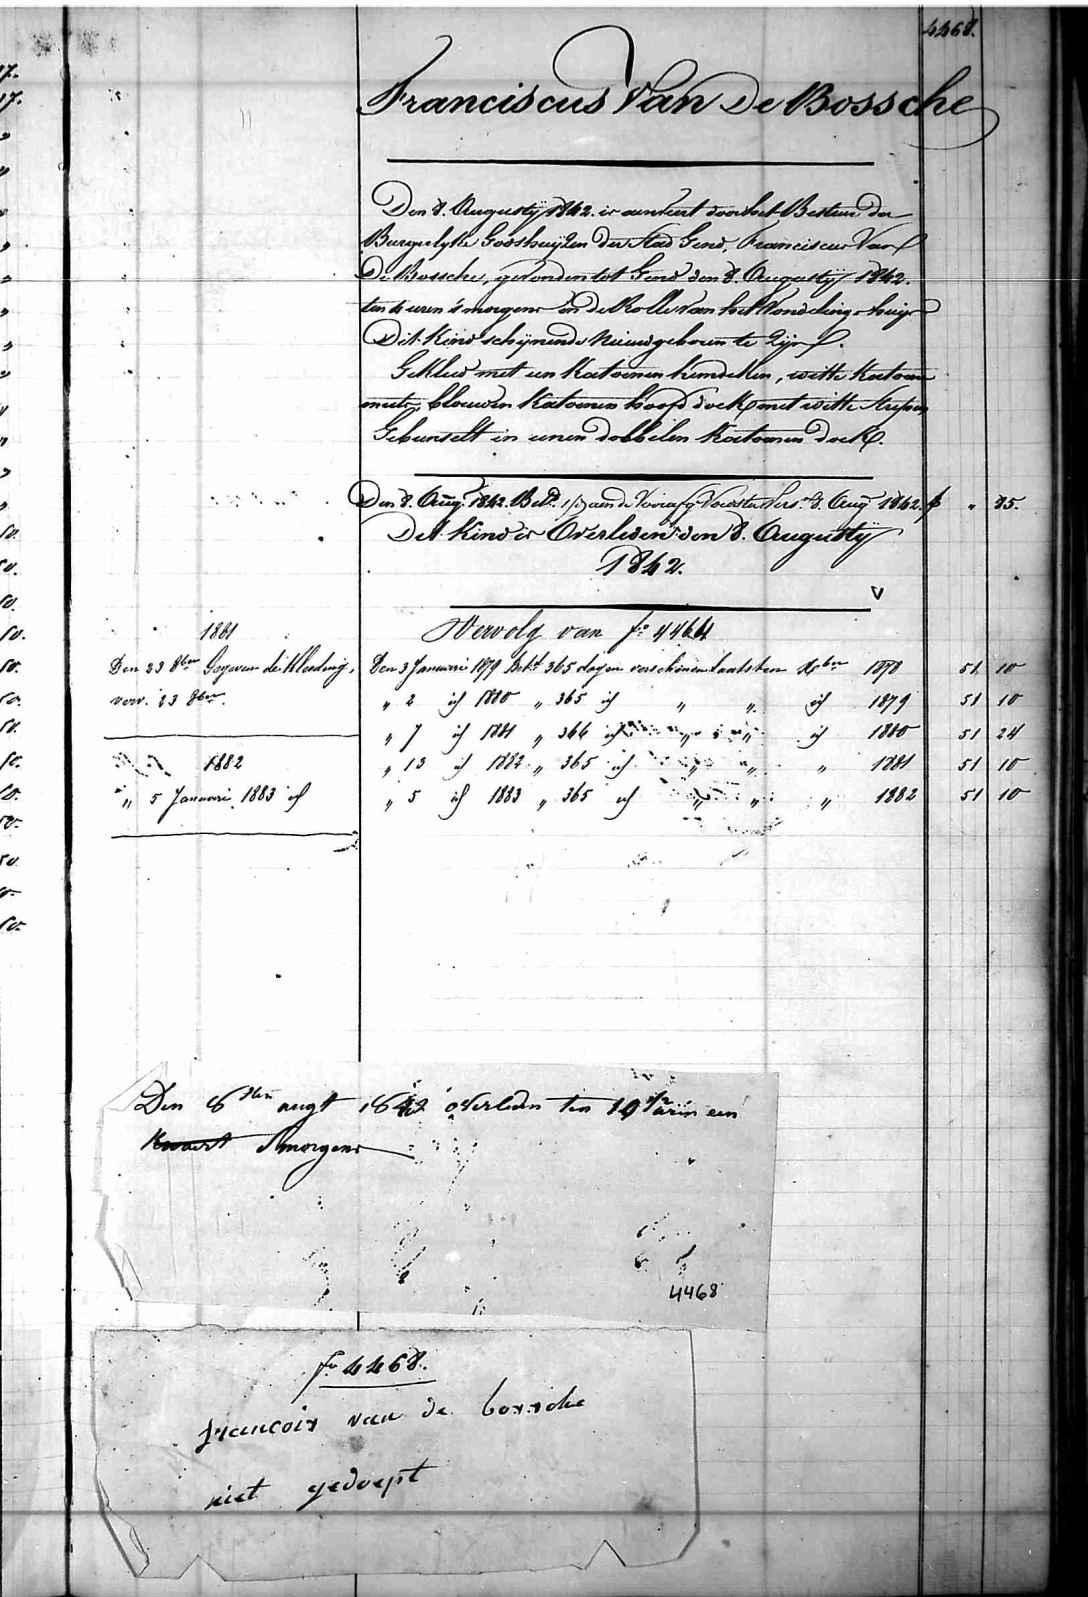 4468.
Franciscus Van De Bossche
Den 8. Augusty 1842. is aenveert door het Bestuer der
Burgerlyke Godshuyzen der Stad Gend, Franciscus Van
De Bossche, gevonden tot Gend den 8. Augusty 1842.
ten 4 uren 's morgens in de Rolle van het Vondelings-huys
Dit Kind schynende Nieuwgeboren te Zyn.
Gekleed met een Katoenen hemdeken, witte Katoene
muts, blauwen Katoenen hoofd doek met witte strepen
Gebunselt in eenen dobbelen Katoenen doek.
Den 8. Aug. 1842. Bet. aen de Voedster 8. Aug 1842. f " 35.
Dit Kind is Overleden den 8. Augusty
1842.
Vervolg van f° 4464
1881
Den 23 8ber Gegeven de Kleeding,
verv. 23 8ber.
1882
" 5 Januari 1883 id
Den 3 Januari 1879 Bet. 365 dagen verschenen laatsten Xber 1878 51 10
" 2 id 1880 " 365 id " " id 1879 51 10
" 7 id 1881 " 366 id " " id 1880 51 24
" 13 id 1882 " 365 id " " " 1881 51 10
" 5 id 1883 " 365 id " " " 1882 51 10
Den 8sten augt 1842 overleden ten 10 een
Kwart Smorgens
4468
f° 4468.
francois van de bossche
niet gedoept